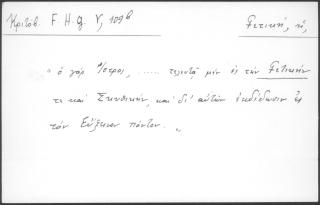 Κριτόβ. F. H. G. V, 109ᵇ
Γετική, ἡ,
"ὁ γὰρ Ἴστρος, ...... τελευτᾷ μὲν ἐς τὴν Γετικήν
τε καὶ Σκυθικήν, καὶ δι' αὐτῶν ἐκδίδωσιν ἐς
τὸν Εὔξεινον πόντον. "